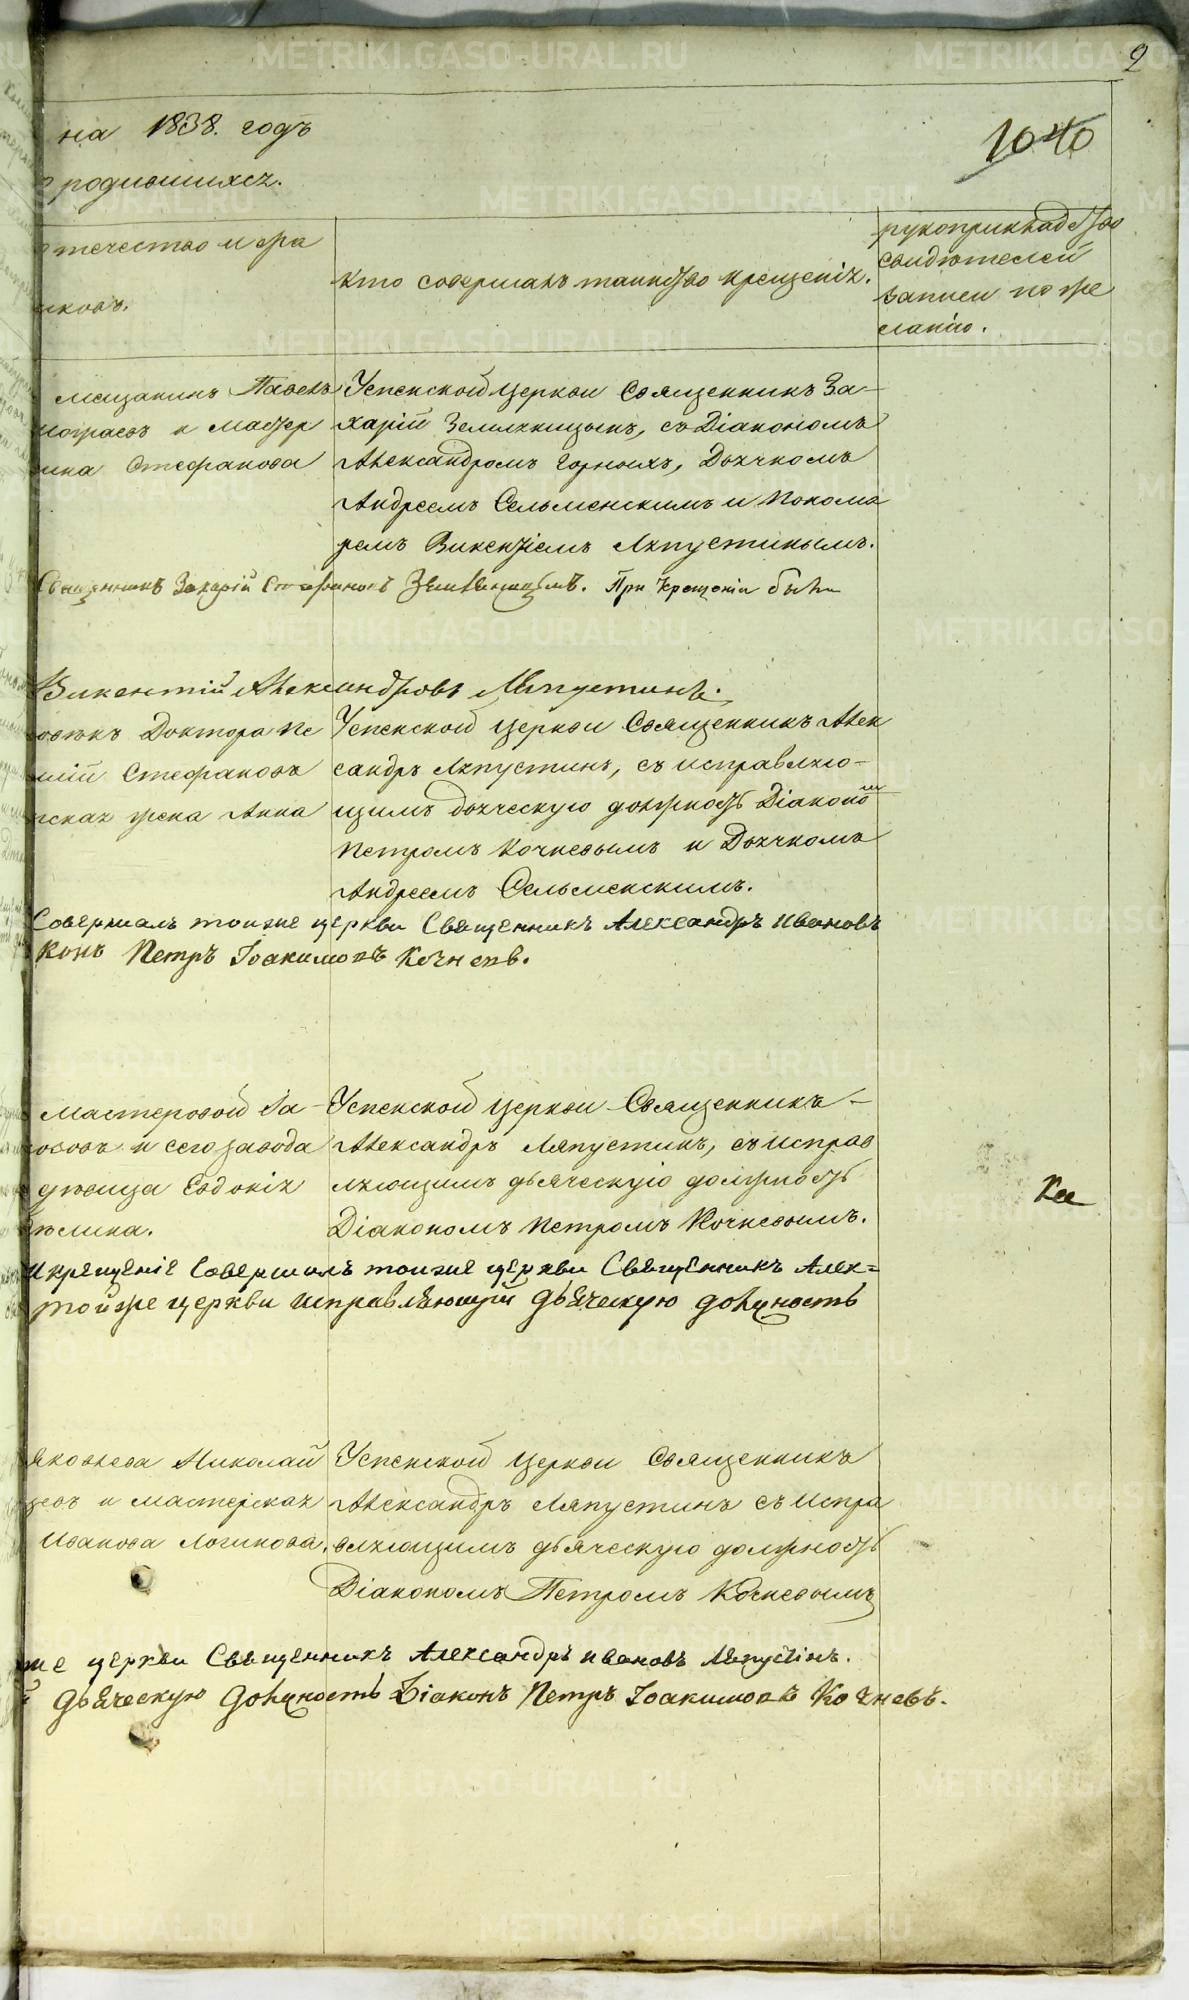 2
на 1838. годъ
1040
родившихся.
отчество и фа
иковъ.
кто совершалъ таинство крещенія.
рукоприкладство
свидѣтелей
записи по же
ланію.
мещанинъ Павелъ
и Мастер
Стефанова
Успенской церкви Священникъ За-
харій Земляницынъ, съ Діакономъ
Александромъ Горныхъ, Дьячкомъ
Андреемъ Сельменскимъ и Понома
ремъ Викентіемъ Ляпустинымъ.
Священникъ Захарій Стефановъ Земляницынъ. При Крещеніи были
Викентій Александровъ Ляпустинъ.
Доктора Пе
Стефановъ
жена Анна
Успенской церкви Священникъ Алек
сандръ Ляпустинъ, съ исправляю-
щимъ дьяческую должность Діакономъ
Петромъ Кочневымъ и Дьячкомъ
Андреемъ Сельменскимъ.
Совершалъ тойже церкви Священникъ Александръ Ивановъ
конъ Петръ Іоакимовъ Кочневъ.
Мастеровой
и сего завода
девица Евдокія
Успенской церкви Священникъ
Александръ Ляпустинъ, съ исправ
ляющимъ дьяческую должность
Діакономъ Петромъ Кочневымъ.
и крещеніе Совершалъ тойже церкви Священникъ Алек=
тойже церкви исправляющій дьяческую должность
Яковлева Николай
и мастерская
Иванова Логинова.
Успенской церкви Священникъ
Александръ Ляпустинъ съ испра
вляющимъ дьяческую должность
Діакономъ Петромъ Кочневымъ
же церкви Священникъ Александръ Ивановъ Ляпустинъ.
дьяческую должность Діаконъ Петръ Іоакимовъ Кочневъ.
METRIKI.GASO-URAL.RU